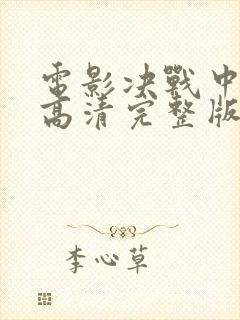 電影決戰中
高清完整版
李心草